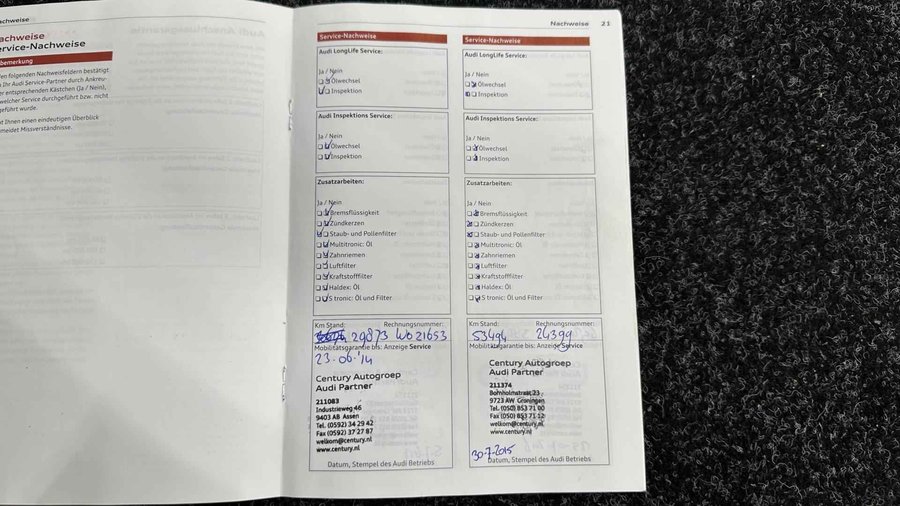 achweise
achweise
ervice-Nachweise
bemerkung
en folgenden Nachweisfeldern bestätigt
Ihr Audi Service-Partner durch Ankreu-
er entsprechenden Kästchen (Ja / Nein),
welcher Service durchgeführt bzw. nicht
geführt wurde.
t Ihnen einen eindeutigen Überblick
meidet Missverständnisse.
Nachweise 21
Service-Nachweise
Audi LongLife Service:
Ja / Nein
Ölwechsel
Inspektion
Audi Inspektions Service:
Ja / Nein
Ölwechsel
Inspektion
Zusatzarbeiten:
Ja / Nein
Bremsflüssigkeit
Zündkerzen
Staub- und Pollenfilter
Multitronic: Öl
Zahnriemen
Luftfilter
Kraftstofffilter
Haldex: Öl
S tronic: Öl und Filter
Km Stand: Rechnungsnummer:
29873 Wo 21653
Mobilitätsgarantie bis: Anzeige Service
23-06-'14
Century Autogroep
Audi Partner
211083
Industrieweg 46
9403 AB Assen
Tel. (0592) 34 29 42
Fax (0592) 37 27 87
welkom@century.nl
www.century.nl
Datum, Stempel des Audi Betriebs
Service-Nachweise
Audi LongLife Service:
Ja / Nein
Ölwechsel
Inspektion
Audi Inspektions Service:
Ja / Nein
Ölwechsel
Inspektion
Zusatzarbeiten:
Ja / Nein
Bremsflüssigkeit
Zündkerzen
Staub- und Pollenfilter
Multitronic: Öl
Zahnriemen
Luftfilter
Kraftstofffilter
Haldex: Öl
S tronic: Öl und Filter
Km Stand: Rechnungsnummer:
53494 24399
Mobilitätsgarantie bis: Anzeige Service
Century Autogroep
Audi Partner
211374
Bornholmstraat 23
9723 AW Groningen
Tel. (050) 853 71 00
Fax (050) 853 71 12
welkom@century.nl
www.century.nl
30-7-2015
Datum, Stempel des Audi Betriebs